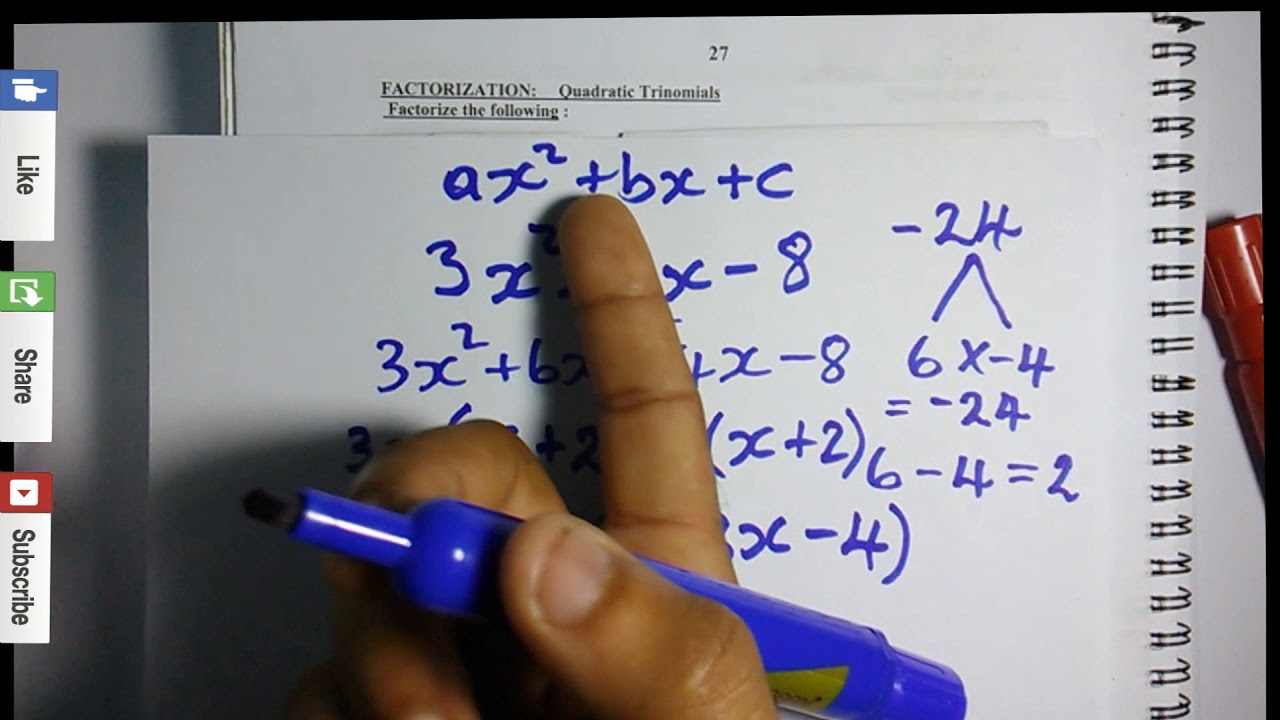 27
FACTORIZATION: Quadratic Trinomials
Factorize the following :
ax² +bx +c
3x² x - 8
3x² +6x x - 8
+2 (x+2)
x - 4)
-24
6 x -4
= -24
6 - 4 = 2
Like
Share
Subscribe